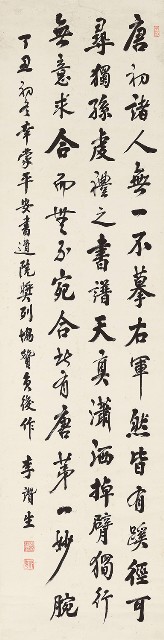 唐初諸人無一不摹右軍然皆有蹊徑可
尋獨孫虔禮之書譜天真瀟洒掉臂獨行
無意求合而無不宛合此有唐第一妙腕
丁丑初冬幸蒙平安書道院奬列協贊員後作 李